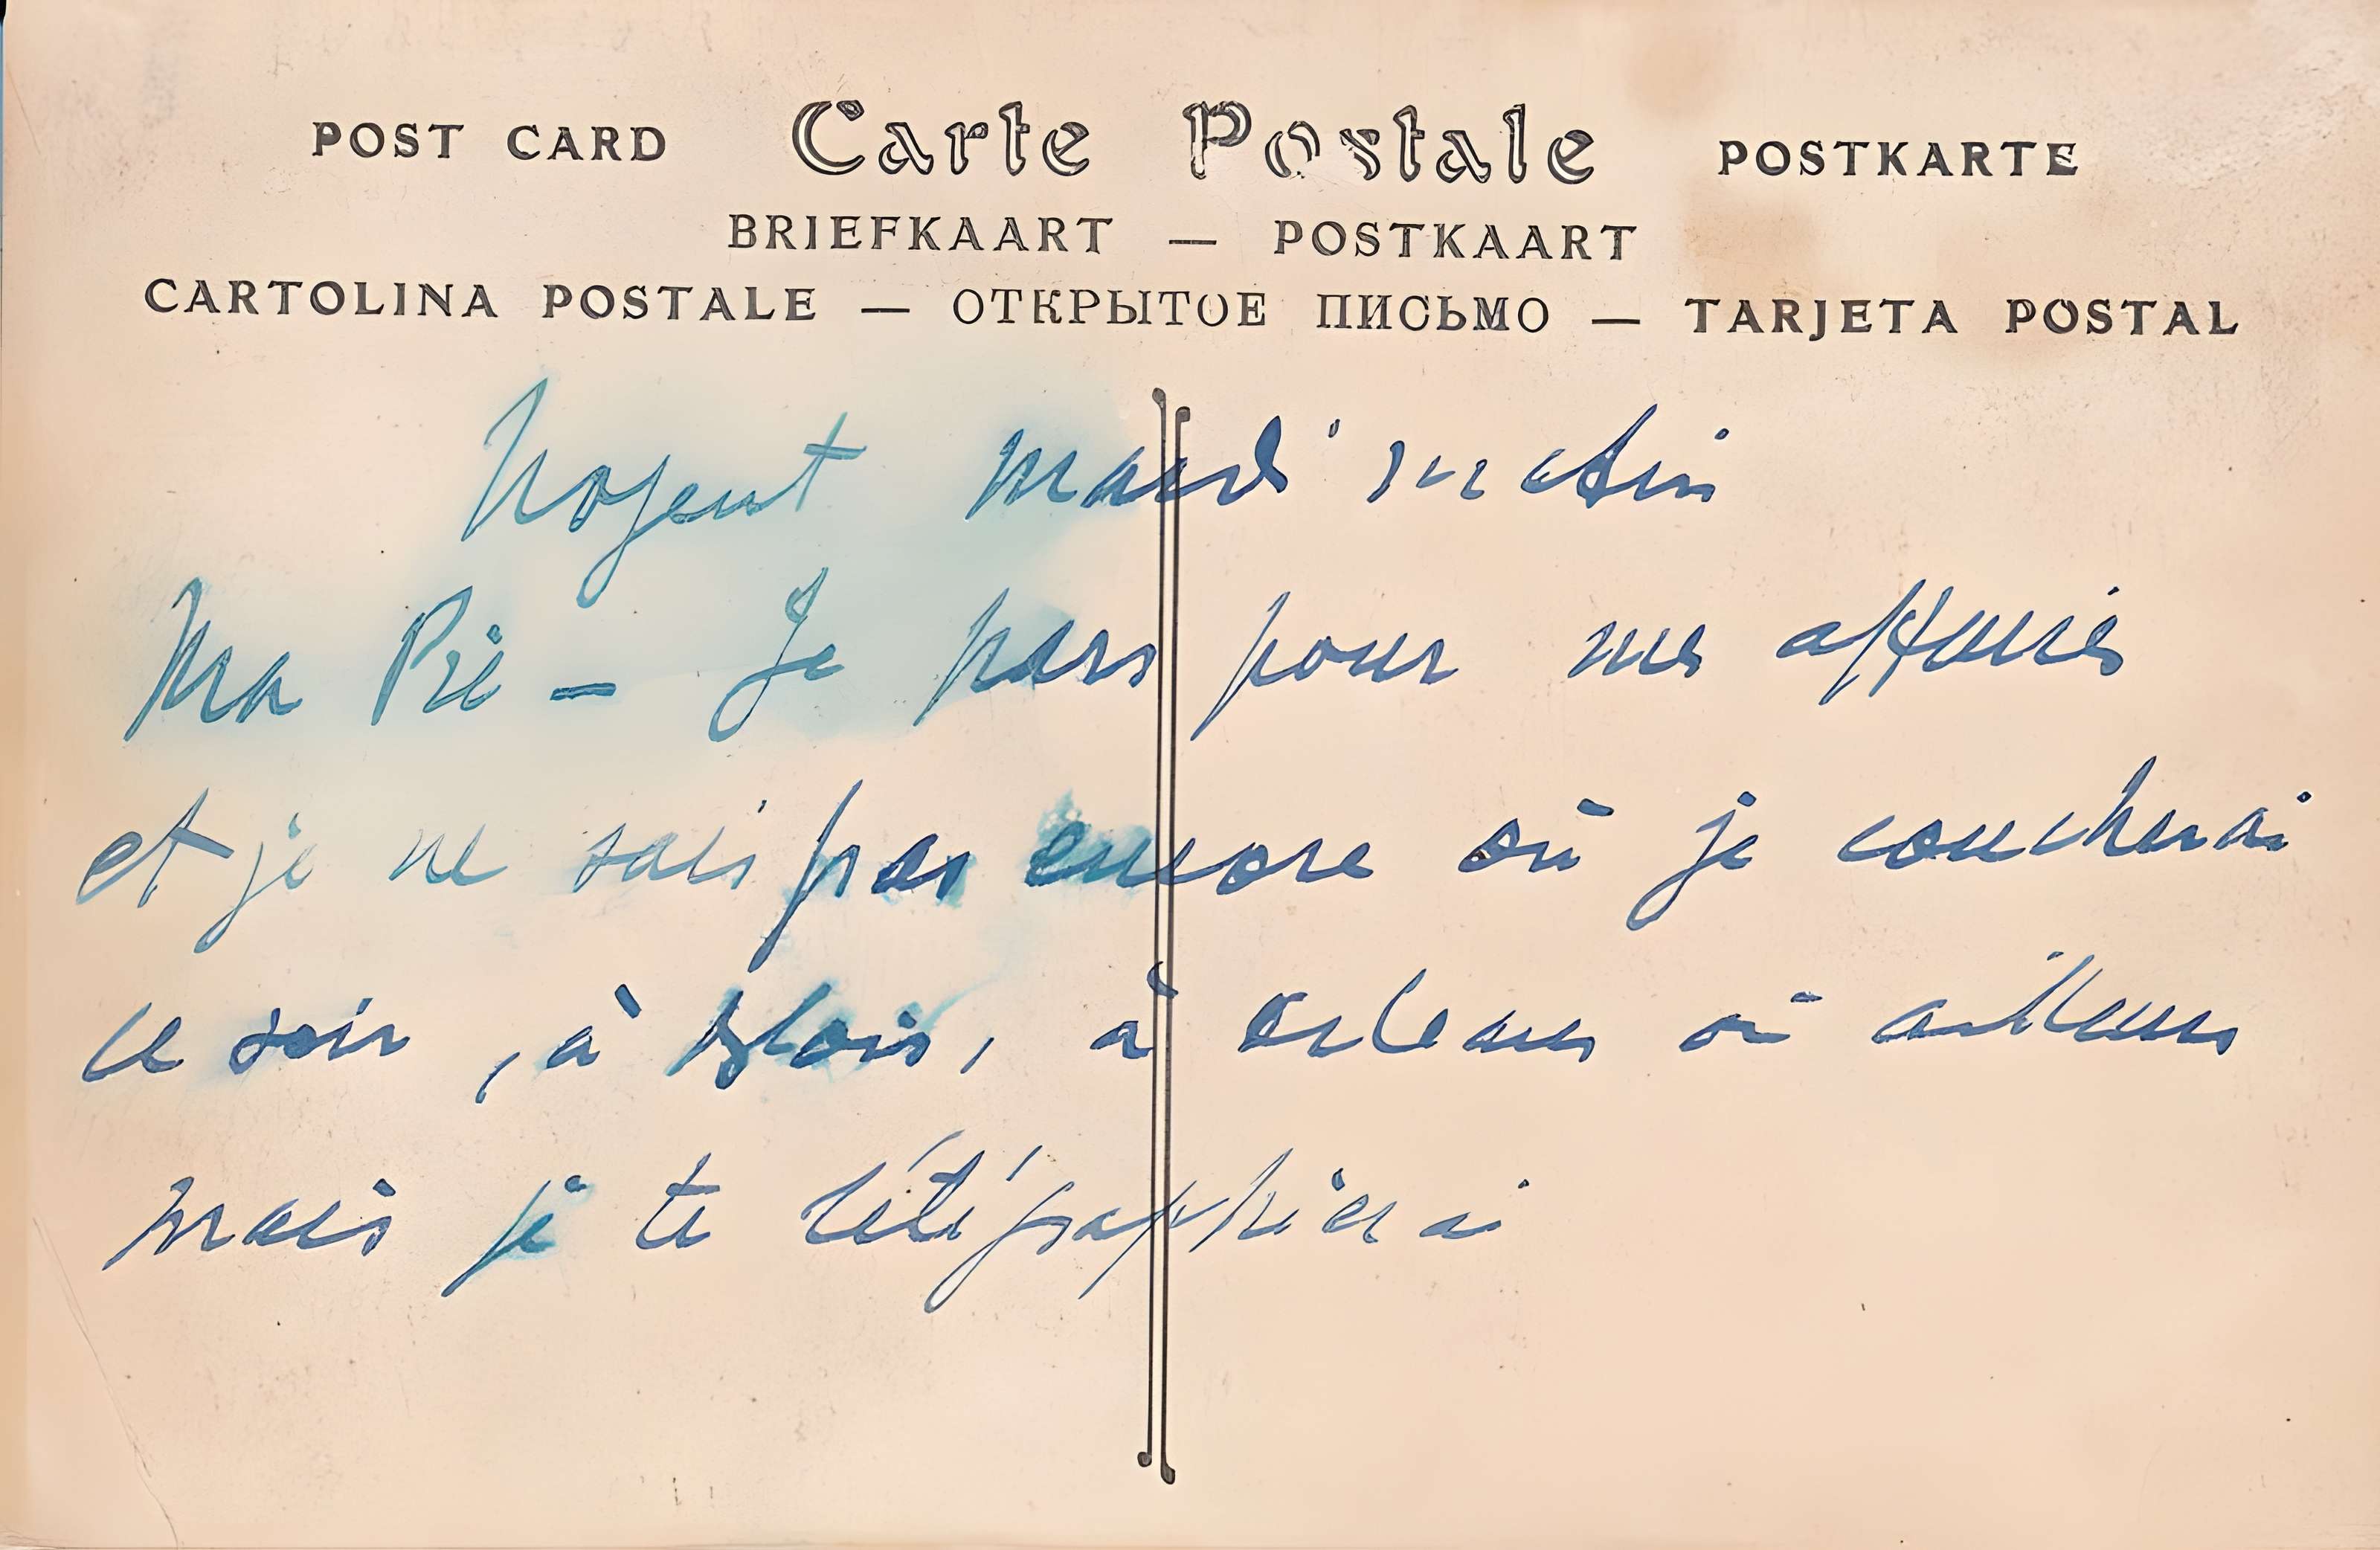 POST CARD Carte Postale POSTKARTE
BRIEFKAART — POSTKAART
CARTOLINA POSTALE — ОТКРЫТОЕ ПИСЬМО — TARJETA POSTAL
Nogent mardi matin
Ma Pie — Je pars pour mes affaires
et je ne sais pas encore où je coucherai
ce soir, à Blois, à orleans où ailleurs
mais je te télégraphierai